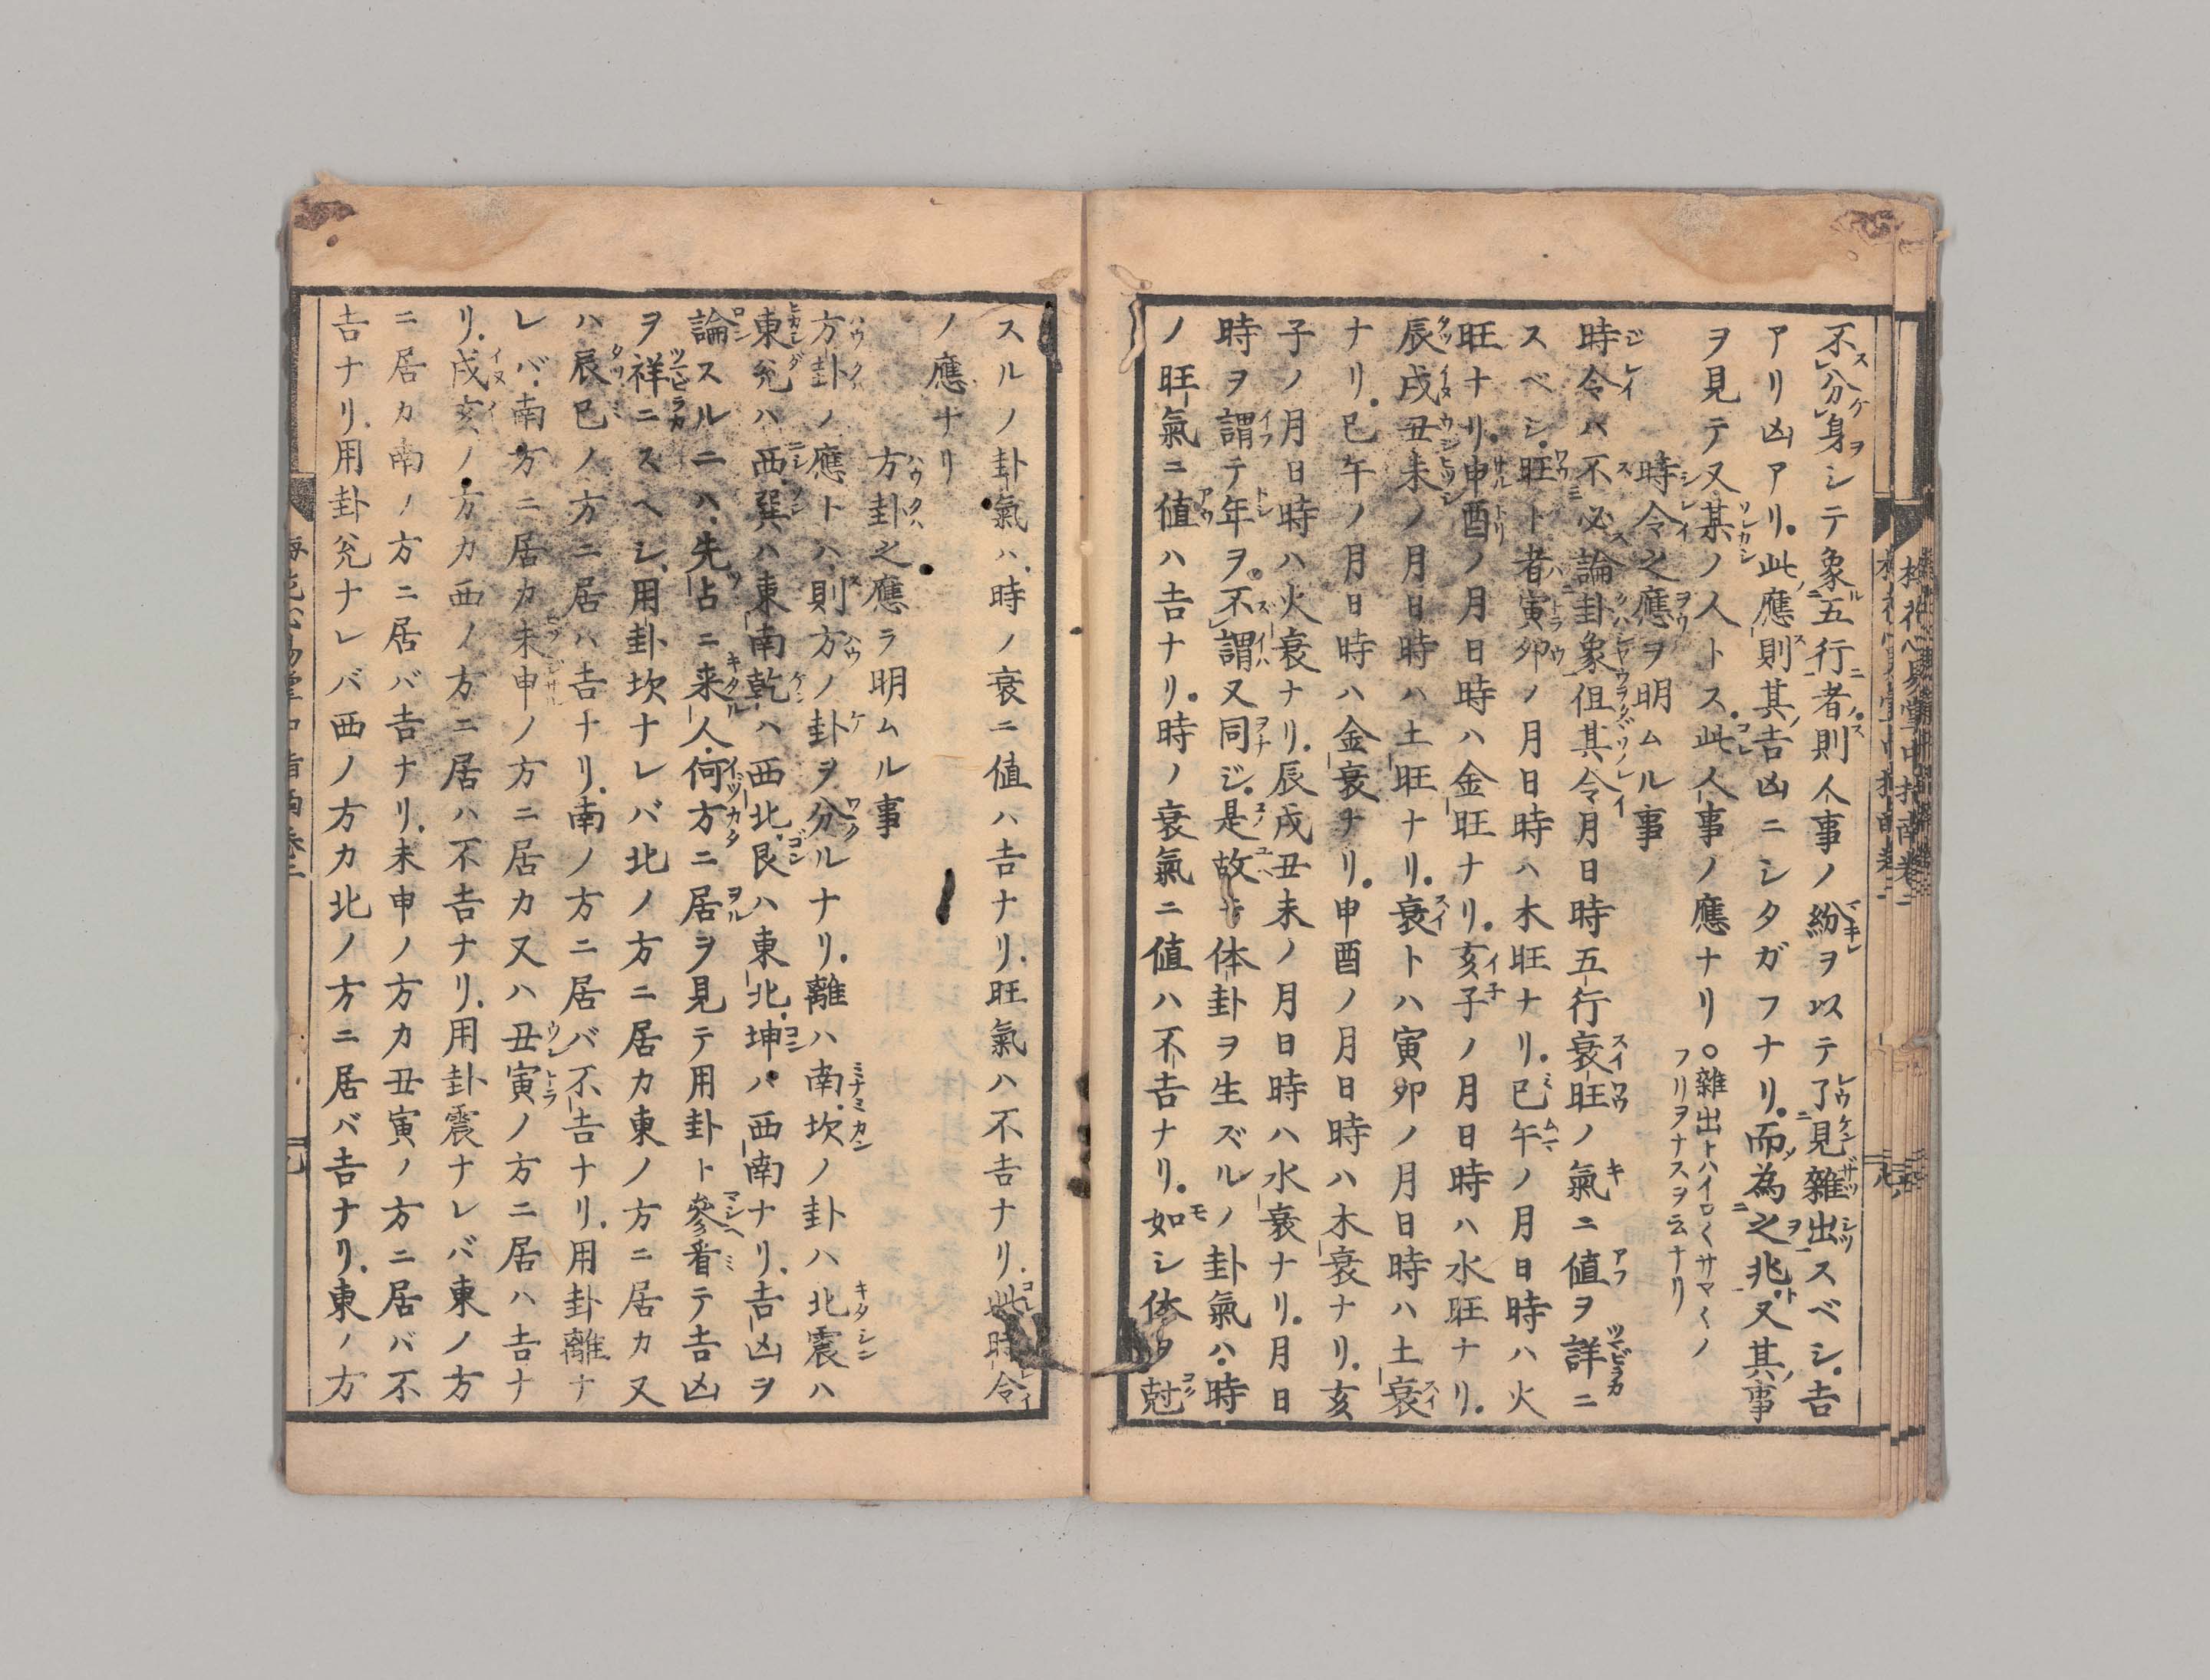 不分身シテ象五行者則人事ノ紛ヲ以テ了見雜出スベシ吉
アリ凶アリ此應則其吉凶ニシタガフナリ而為之兆又其事
ヲ見テ又某ノ人トス此人事ノ應ナリ○雜出トハイロ〱サマ〱ノ
フリヲナスヲ云ナリ
時令之應ヲ明ムル事
時令ハ不必論卦象但其令月日時五行衰旺ノ氣ニ値ヲ詳ニ
スベシ旺ト者寅卯ノ月日時ハ木旺ナリ巳午ノ月日時ハ火
旺ナリ申酉ノ月日時ハ金旺ナリ亥子ノ月日時ハ水旺ナリ
辰戌丑未ノ月日時ハ土旺ナリ衰トハ寅卯ノ月日時ハ土衰
ナリ巳午ノ月日時ハ金衰ナリ申酉ノ月日時ハ木衰ナリ亥
子ノ月日時ハ火衰ナリ辰戌丑未ノ月日時ハ水衰ナリ月日
時ヲ謂テ年ヲ不謂又同ジ是故ニ体卦ヲ生ズルノ卦氣ハ時
ノ旺氣ニ値ハ吉ナリ時ノ衰氣ニ値ハ不吉ナリ如シ体タ尅
スルノ卦氣ハ時ノ衰ニ値ハ吉ナリ旺氣ハ不吉ナリ此時令
ノ應ナリ
方卦之應ヲ明ムル事
方卦ノ應トハ則方ノ卦ヲ分ルナリ離ハ南坎ノ卦ハ北震ハ
東兊ハ西巽ハ東南乾ハ西北艮ハ東北坤ハ西南ナリ吉凶ヲ
論スルニハ先占ニ来人何方ニ居ヲ見テ用卦ト參看テ吉凶
ヲ祥ニスヘシ用卦坎ナレバ北ノ方ニ居カ東ノ方ニ居カ又
ハ辰巳ノ方ニ居ハ吉ナリ南ノ方ニ居バ不吉ナリ用卦離ナ
レバ南方ニ居カ未申ノ方ニ居カ又ハ丑寅ノ方ニ居ハ吉ナ
リ戌亥ノ方カ西ノ方ニ居ハ不吉ナリ用卦震ナレバ東ノ方
ニ居カ南ノ方ニ居バ吉ナリ未申ノ方カ丑寅ノ方ニ居バ不
吉ナリ用卦兊ナレバ西ノ方カ北ノ方ニ居バ吉ナリ東ノ方